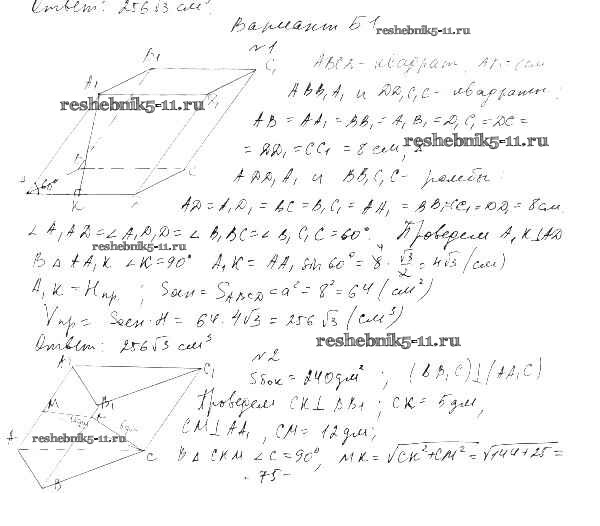 Ответ: 256√3 см³.
Вариант Б1
reshebnik5-11.ru
№1
ABCD - квадрат, AB = 8 см
ABB₁A₁ и DD₁C₁C - квадраты:
reshebnik5-11.ru
AB = AA₁ = BB₁ = A₁B₁ = D₁C₁ = DC =
reshebnik5-11.ru
= DD₁ = CC₁ = 8 см,
ADD₁A₁ и BB₁C₁C - ромбы:
AD = A₁D₁ = BC = B₁C₁ = AA₁ = BB₁ = CC₁ = DD₁ = 8 см.
∠A₁AD = ∠A₁D₁D = ∠B₁BC = ∠B₁C₁C = 60°. Проведем A₁K⊥AD
reshebnik5-11.ru
В △AA₁K ∠K = 90° A₁K = AA₁ sin 60° = 8 · √3/2 = 4√3 (см)
A₁K = Hпр ; Sосн = SABCD = a² = 8² = 64 (см²)
Vпр = Sосн · H = 64 · 4√3 = 256√3 (см³)
Ответ: 256√3 см³
reshebnik5-11.ru
№2
Sбок = 240 дм² ; (BB₁C)⊥(AA₁C)
Проведем CK⊥BB₁ ; CK = 5 дм,
CM⊥AA₁, CM = 12 дм;
reshebnik5-11.ru
В △CKM ∠C = 90°, MK = √CK²+CM² = √144+25 =
- 75 -
A₁
B₁
C₁
A
60°
K
C
M
B